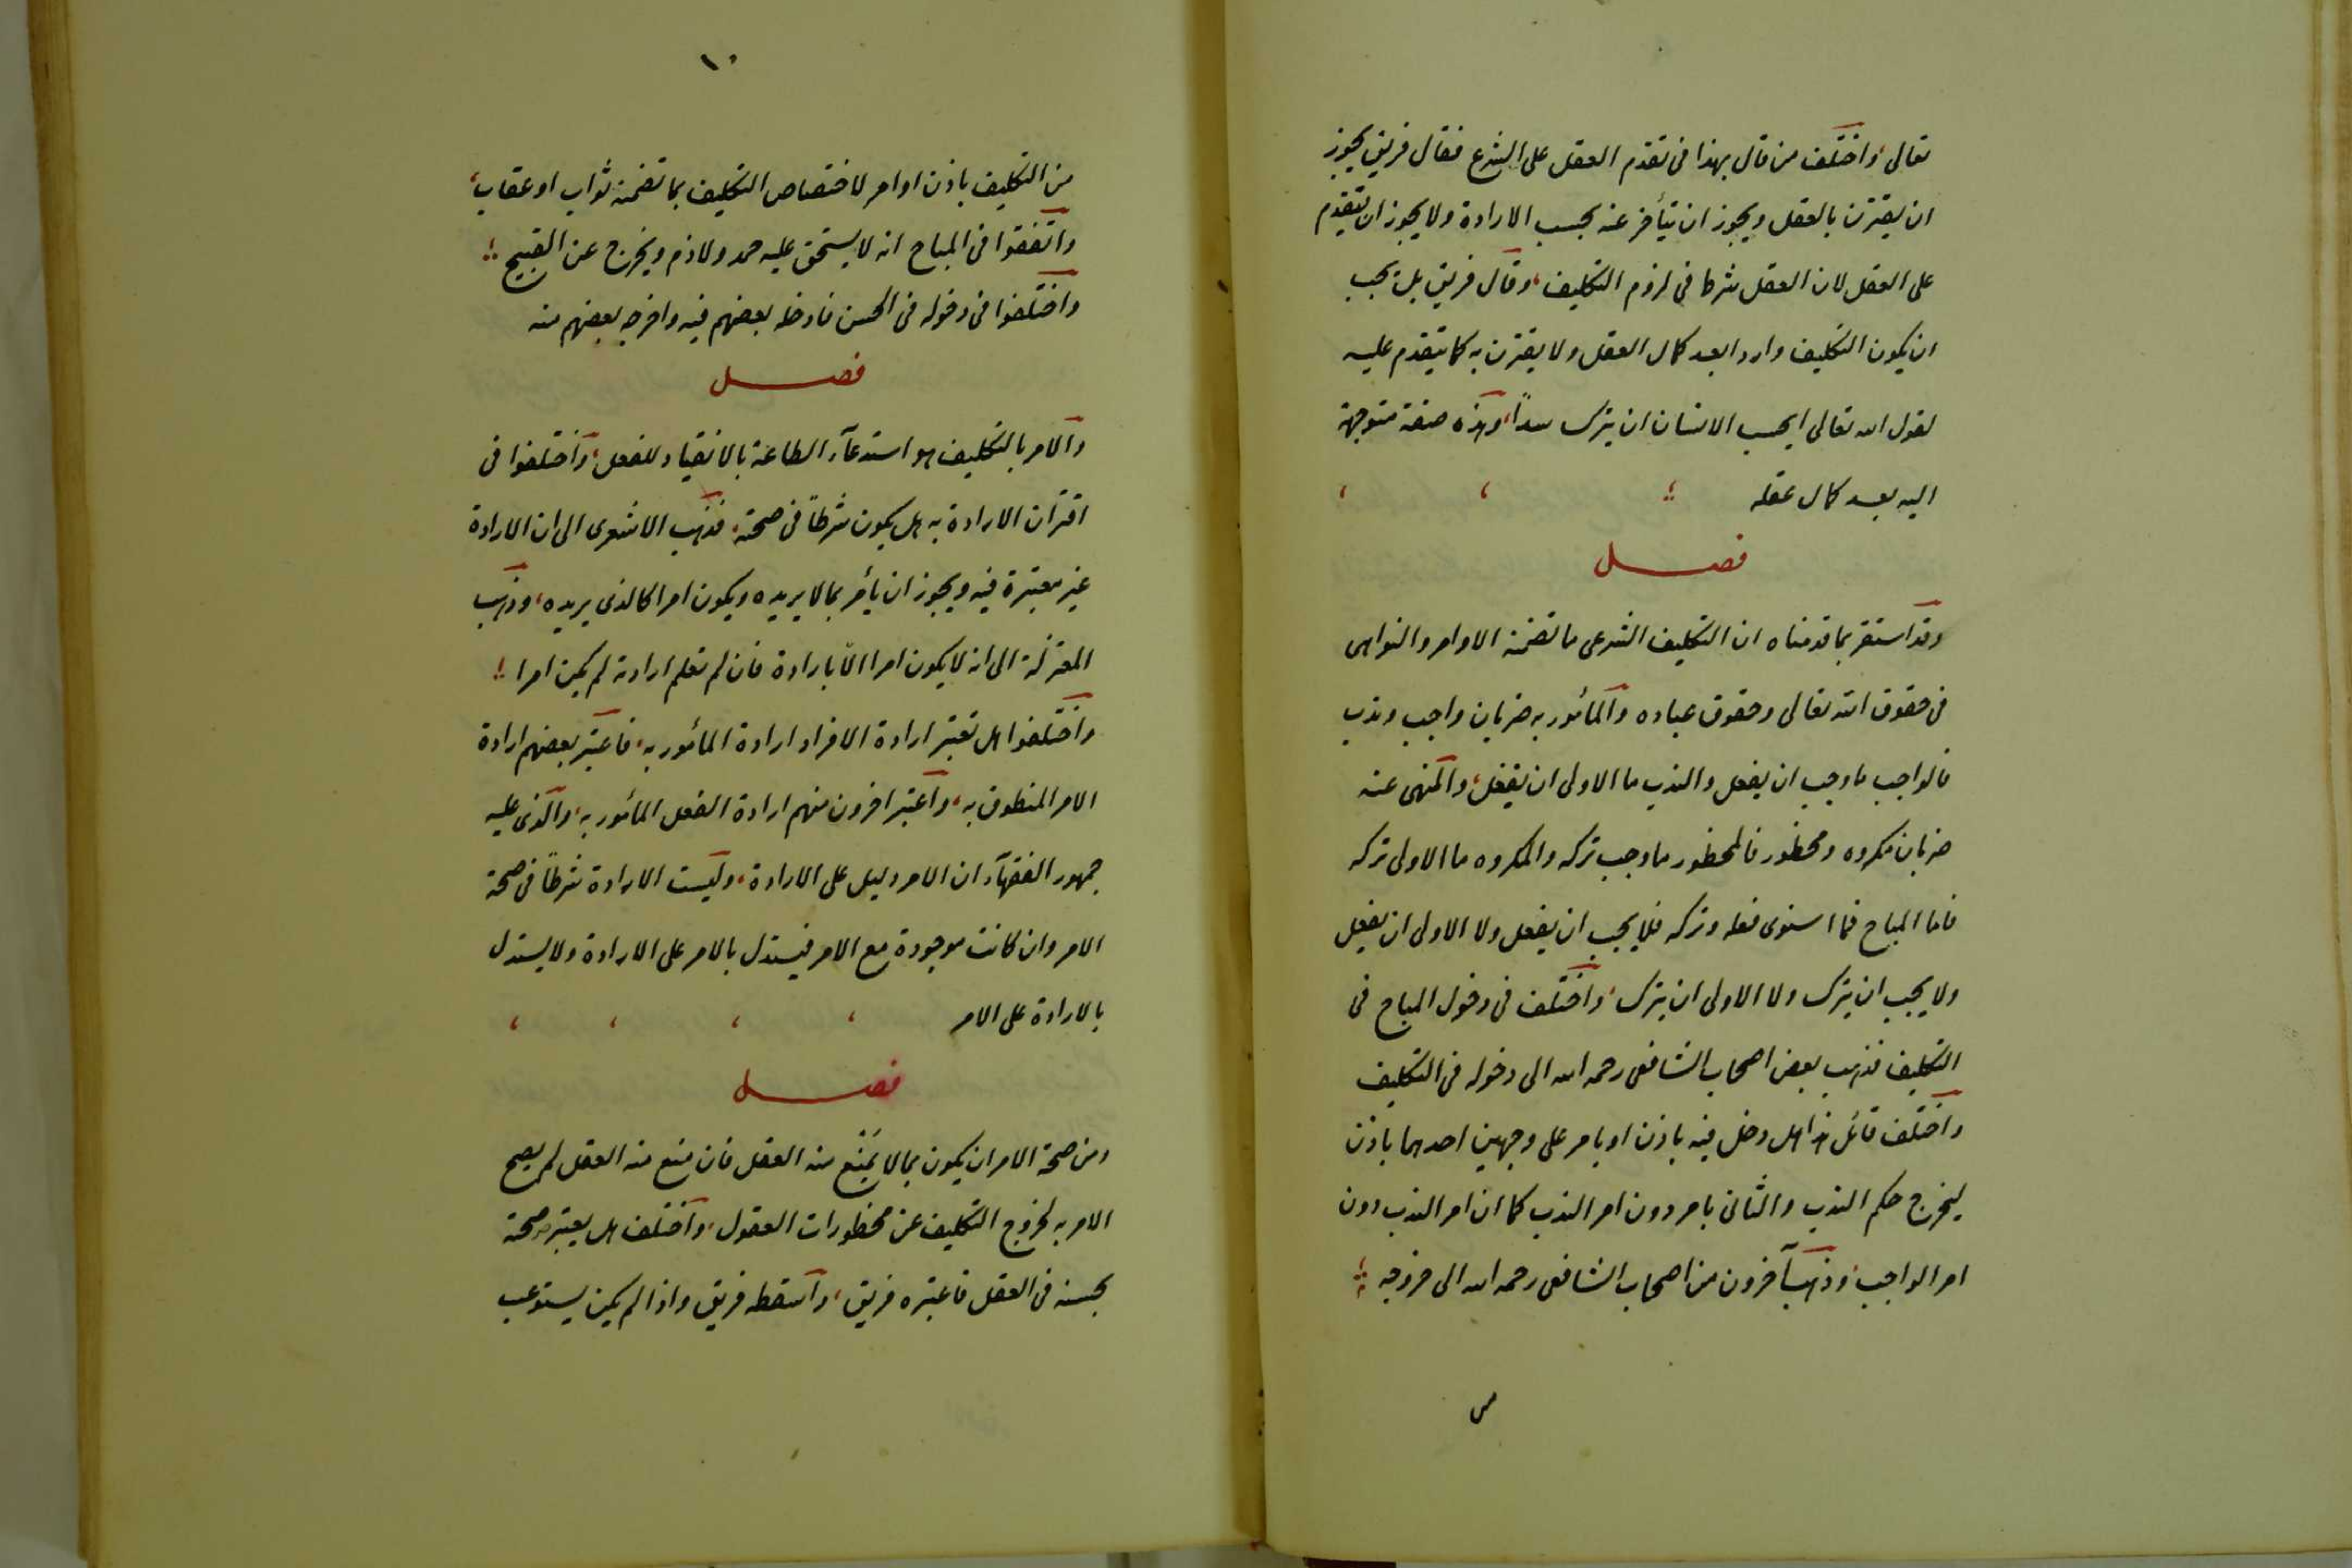 تعالى واختلف من قال بهذا فى تقدم العقل على الشرع فقال فريق يجوز
ان يقترن بالعقل ويجوز ان يتأخر عنه بحسب الارادة ولا يجوز ان يتقدم
على العقل لان العقل شرطا فى لزوم التكليف، وقال فريق بل يجب
ان يكون التكليف واردا بعد كمال العقل ولا يقترن به كما يتقدم عليه
لقول الله تعالى ايحسب الانسان ان يترك سداً، وهذه صفة متوجهة
اليه بعد كمال عقله
فصل
وقد استقر بما قدمناه ان التكليف الشرعى ما تضمنه الاوامر والنواهى
فى حقوق الله تعالى وحقوق عباده والمأمور به ضربان واجب وندب
فالواجب ما وجب ان يفعل والندب ما الاولى ان يفعل، والمنهى عنه
ضربان مكروه ومحظور فالمحظور ما وجب تركه والمكروه ما الاولى تركه
فاما المباح فما استوى فعله وتركه فلا يجب ان يفعل ولا الاولى ان يفعل
ولا يجب ان يترك ولا الاولى ان يترك، واختلف فى دخول المباح فى
التكليف فذهب بعض اصحاب الشافعى رحمه الله الى دخوله فى التكليف
واختلف قائل هذا هل دخل فيه باذن او بامر على وجهين احدهما باذن
ليخرج حكم الندب والثانى بامر دون امر الندب كما ان امر الندب دون
امر الواجب، وذهب آخرون من اصحاب الشافعى رحمه الله الى خروجه
من
١٠
من التكليف باذن اوامر لاختصاص التكليف بما تضمنه ثواب او عقاب،
واتفقوا فى المباح انه لا يستحق عليه حمد ولا ذم ويخرج عن القبيح
واختلفوا فى دخوله فى الحسن فادخله بعضهم فيه واخرجه بعضهم منه
فصل
والامر بالتكليف هو استدعآء الطاعة بالانقياد للفعل، واختلفوا فى
اقتران الارادة به هل يكون شرطاً فى صحته، فذهب الاشعرى الى ان الارادة
غير معتبرة فيه ويجوز ان يأمر بما لا يريده ويكون امرا كالذى يريده، وذهب
المعتزلة الى انه لا يكون امرا الّا بارادة فان لم تعلم ارادته لم يكن امرا
واختلفوا هل تعتبر ارادة الافراد ارادة المأمور به، فاعتبر بعضهم ارادة
الامر المنطوق به، واعتبر اخرون منهم ارادة الفعل المأمور به، والذى عليه
جمهور الفقهآء ان الامر دليل على الارادة، وليست الارادة شرطاً فى صحة
الامر وان كانت موجودة مع الامر فيستدل بالامر على الارادة ولا يستدل
بالارادة على الامر
فصل
ومن صحة الامر ان يكون بما لا يَمنَع منه العقل فان منع منه العقل لم يصح
الامر به لخروج التكليف عن محظورات العقول، واختلف هل يعتبر صحة
بحسنه فى العقل فاعتبره فريق، واسقطه فريق واذا لم يكن يستوعب